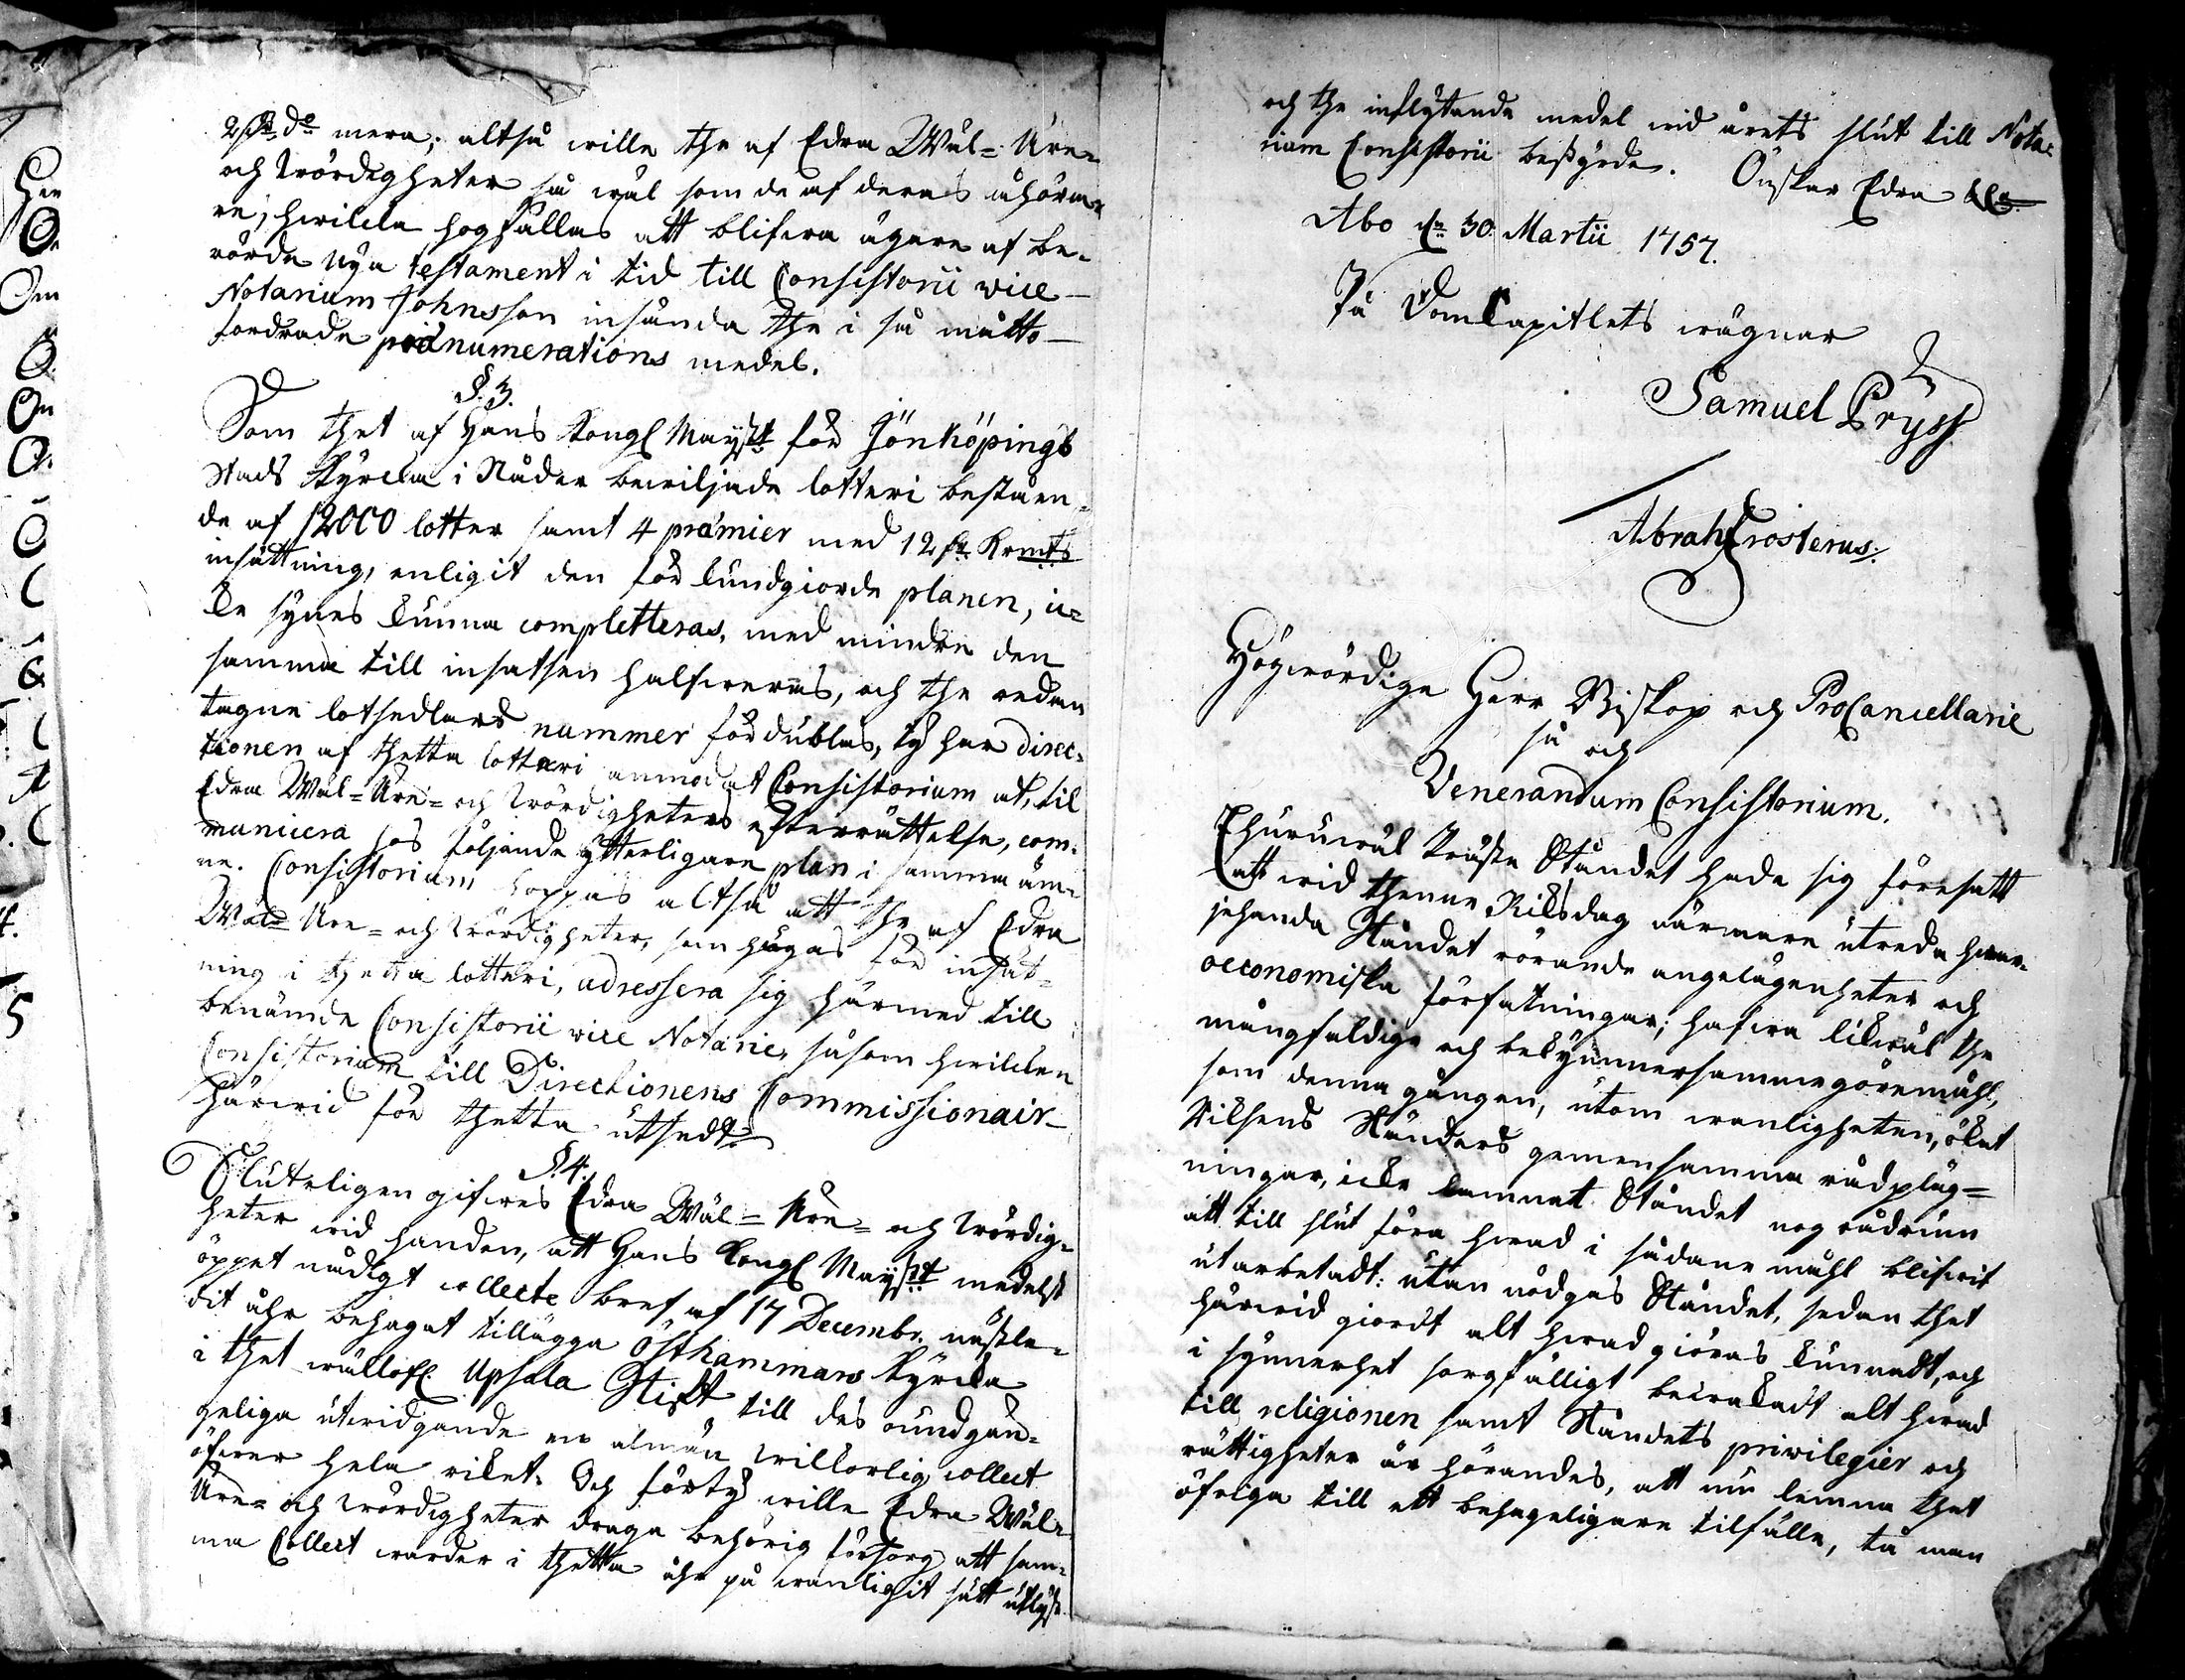 2 d:o mera; altså wille the af Edra Wäl- Äre-
och Wördigheter så wäl som de af deras åhöra-
re, hwilcka hogfällas att blifwa ägare af be-
rörde Nya testament i tid till Consistorii vice
Notarium Johnsson insända the i så måtto
fordrade prænumerations medel.
§. 3.
Som thet af Hans Kongl Mayst:t för Jönköpings
Stads Kyrcka i Nåder bewiljade lotteri beståen-
de af 12000 lotter samt 4 præmier med 12 Krmts
insättning, enligit den för kundgiorde planen, ic-
ke synes kunna completteras, med mindre den
samma till insatsen halfweras, och the redan
tagne lotsedlars nummer fördublas, ty har direc-
tionen af thetta lotteri anmodat Consistorium at, til
Edra Wäl- Äre- och Wördigheters efterrättelse, com-
municera hos följande ytterligare plan i samma äm-
ne. Consistorium hoppas altså att the af Edra
Wäl- Äre- och Wördigheter, som hugas för insät-
ning i thetta lotteri, adressera sig härmed till
benämde Consistorii vice Notarie, såsom hwilcken
Consistorium till Directionens Commissionair
härwid för thetta utsedt.
§. 4.
Sluteligen gifwes Edra Wäl- Äre- och Wördig-
heter wid handen, att Hans Kongl Mayst:t medelst
öppet nådigt collecte bref af 17 Decembr. nästle-
dit åhr behagat tillägga Östhammars Kyrcka
i thet wällofl. Upsala Stift till des oundgän-
geliga utwidgande en almän willkorlig collect
öfwer hela riket. Och förty wille Edra Wäl-
Äre- och Wördigheter draga behörig försorg att sam-
ma Collect warder i thetta åhr på wanligit sätt utlyst
och the inflytande medel wid årets slut till Nota-
rium Consistorii bestyrde. Önskar Edra &c.
Åbo d. 30. Martii 1757.
På DomCapitlets wägnar
Samuel Pryss
Abrah Frosterus.
Högwördige Herr Biskop och ProCancellarie
så och
Venerandum Consistorium.
Ehuruwäl Präste Ståndet hade sig föresatt
att wid thenne Riksdag närmare utreda hwar-
jehanda Ståndet rörande angelägenheter och
oeconomiska författningar; hafwa likwäl the
mångfaldige och bekymmersamme göremåhl,
som denna gången, utom wanligheten, ökat
Riksens Ständers gemensamma rådpläg-
ningar, icke lemnat Ståndet nog rådrum
att till slut föra hwad i sådane måhl blifwit
utarbetadt: utan nödgas Ståndet, sedan thet
härwid giordt alt hwad giöras kunnadt, och
i synnerhet sorgfälligt bewakadt alt hwad
till religionen samt Ståndets privilegier och
rättigheter är hörandes, att nu lemna thet
öfriga till ett behageligare tilfälle, tå man